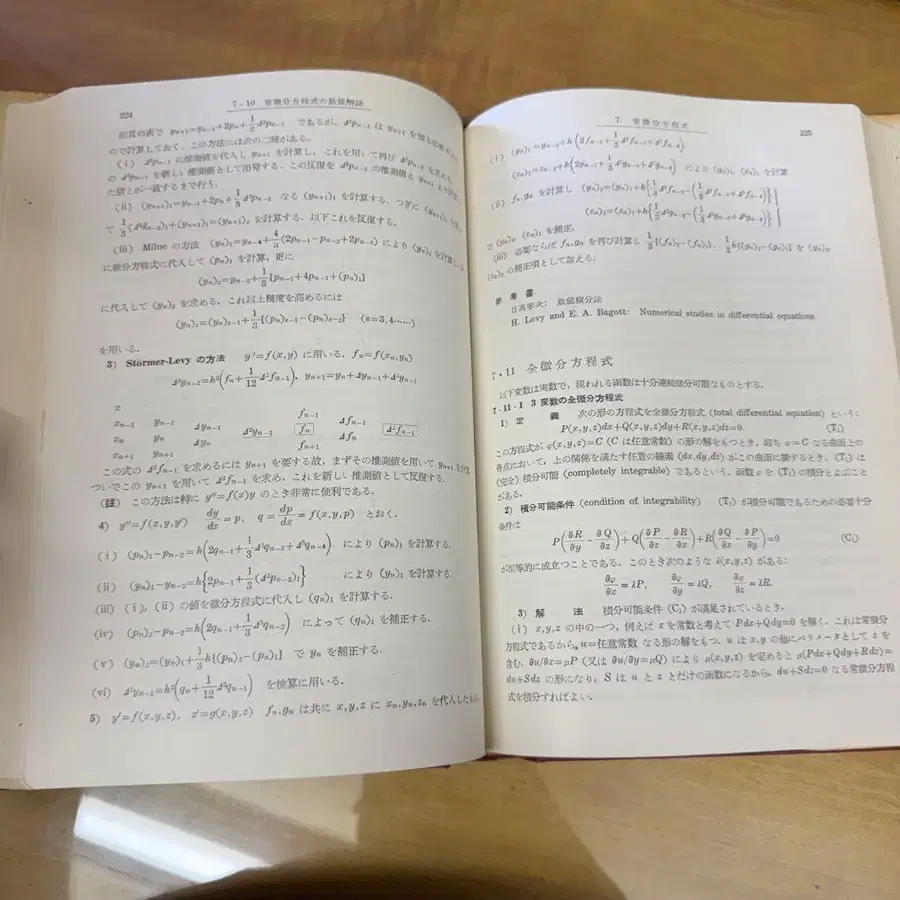 224
7・10 常微分方程式の数値解法
前頁の表で yₙ₊₁=yₙ₋₁+2pₙ+1/3 Δ²pₙ₋₁ であるが, Δ²pₙ₋₁ は yₙ₊₁ を
ので計算しておく. この方法には次の二種がある.
(i) Δ²pₙ₋₁ に推測値を代入し yₙ₊₁ を計算し, これを用いて再び Δ²pₙ₋₁ を求める.
の Δ²pₙ₋₁ を新しい推測値として出発する. この反復を Δ²pₙ₋₁ の推測値と
た値とが一致するまで行う.
(ii) (yₙ₊₁)₁=yₙ₋₁+2pₙ+1/3 Δ²pₙ₋₂ なる (yₙ₊₁)₁ を計算する. つぎに (yₙ₊₁)₁ を
て 1/3(Δ²qₙ₋₂)₁+(yₙ₊₁)₁=(yₙ₊₁)₂ を計算する. 以下これを反復する.
(iii) Milne の方法 (yₙ)₁=yₙ₋₄+4/3(2pₙ₋₁−pₙ₋₂+2pₙ₋₃) により (yₙ)₁ を計算し,
に微分方程式に代入して (pₙ)₁ を計算, 更に
(yₙ)₂=yₙ₋₂+1/3{pₙ₋₂+4pₙ₋₁+(pₙ)₁}
に代入して (yₙ)₂ を求める. これ以上精度を高めるには
(yₙ)ₛ=(yₙ)ₛ₋₁+1/3{(pₙ)ₛ₋₁−(pₙ)ₛ₋₂} (s=3,4……)
を用いる.
3) Störmer-Levy の方法 y''=f(x,y) に用いる. fₙ=f(xₙ,yₙ)
Δ²yₙ₋₁=h²(fₙ+1/12 Δ²fₙ₋₁), yₙ₊₁=yₙ+Δyₙ₋₁+Δ²yₙ₋₁
x fₙ₋₁
xₙ₋₁ yₙ₋₁ Δyₙ₋₁ Δfₙ₋₁
xₙ yₙ Δ²yₙ₋₁ fₙ Δ²fₙ₋₁
xₙ₊₁ yₙ₊₁ Δyₙ fₙ₊₁ Δfₙ
この式の Δ²fₙ₋₁ を求めるには yₙ₊₁ を要する故, まずその推測値を用いて yₙ₊₁ を計算
ついでこの yₙ₊₁ を用いて Δ²fₙ₋₁ を求め, これを新しい推測値として反復する.
(註) この方法は特に y''=f(x)y のとき非常に便利である.
4) y''=f(x,y,y') dy/dx=p, q=dp/dx=f(x,y,p) とおく.
(i) (pₙ)₁−pₙ₋₂=h(2qₙ₋₁+1/3 Δ²qₙ₋₃+Δ³qₙ₋₄) により (pₙ)₁ を計算する.
(ii) (yₙ)₁−yₙ₋₂=h{2pₙ₋₁+1/3(Δ²pₙ₋₂)₁} により (yₙ)₁ を計算する.
(iii) (i), (ii) の値を微分方程式に代入し (qₙ)₁ を計算する.
(iv) (pₙ)₂−pₙ₋₂=h(2qₙ₋₁+1/3 Δ²qₙ₋₂) によって (qₙ)₁ を補正する.
(v) (yₙ)₂=(yₙ)₁+1/3 h{(pₙ)₂−(pₙ)₁} で yₙ を補正する.
(vi) Δ²yₙ₋₁=h²(qₙ+1/12 Δ²qₙ₋₁) を検算に用いる.
5) y'=f(x,y,z), z'=g(x,y,z) fₙ,gₙ は共に x,y,z に xₙ,yₙ,zₙ を代入した
7 常微分方程式
225
(i) (yₙ)₁=yₙ₋₂+h(2fₙ₋₁+1/3 Δ²fₙ₋₃+Δ³fₙ₋₄)
(zₙ)₁=zₙ₋₂+h(2gₙ₋₁+1/3 Δ²gₙ₋₃+Δ³gₙ₋₄) により (yₙ)₁, (zₙ)₁ を計算
(ii) fₙ,gₙ を計算し
で (yₙ)₁, (zₙ)₁ を補正.
(iii) 必要ならば fₙ,gₙ を再び計算し 1/3{(fₙ)₂−(fₙ)₁}, 1/3 h{(gₙ)₂−(gₙ)₁} を (yₙ)₂,
(zₙ)₂ の補正項として加える.
参考書
日高孝次: 数値積分法
H. Levy and E. A. Bagott: Numerical studies in differential equations.
7・11 全微分方程式
以下変数は実数で, 現われる函数は十分連続微分可能なものとする.
7・11・1 3変数の全微分方程式
1) 定 義 次の形の方程式を全微分方程式 (total differential equation) という:
P(x,y,z)dx+Q(x,y,z)dy+R(x,y,z)dz=0. (T₁)
この方程式が φ(x,y,z)=C (C は任意常数) の形の解をもつとき, 即ち φ=C なる曲面上の
各点において, 上の関係を満たす任意の線素 (dx,dy,dz) がこの曲面に接するとき, (T₁) は
(完全) 積分可能 (completely integrable) であるという. 函数 φ を (T₁) の積分とよぶことが
ある.
2) 積分可能条件 (condition of integrability) (T₁) が積分可能であるための必要十分
条件は
P(∂R/∂y−∂Q/∂z)+Q(∂P/∂z−∂R/∂x)+R(∂Q/∂x−∂P/∂y)=0 (C₁)
が恒等的に成立つことである. このとき次のような λ(x,y,z) がある:
∂φ/∂x=λP, ∂φ/∂y=λQ, ∂φ/∂z=λR.
3) 解 法 積分可能条件 (C₁) が満足されているとき,
(i) x,y,z の中の一つ, 例えば z を常数と考えて Pdx+Qdy=0 を解く. これは常微分
方程式であるから, u=任意常数 なる形の解をもつ. u は x,y の他にパラメータとして z を
含む. ∂u/∂x=μP (又は ∂u/∂y=μQ) により μ(x,y,z) を定めると μ(Pdx+Qdy+Rdz)=
du+Sdz の形になり, S は u と z とだけの函数になるから, du+Sdz=0 なる常微分方程
式を積分すればよい.